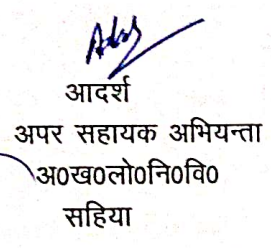 आदर्श
अपर सहायक अभियन्ता
अ०ख०लो०नि०वि०
सहिया